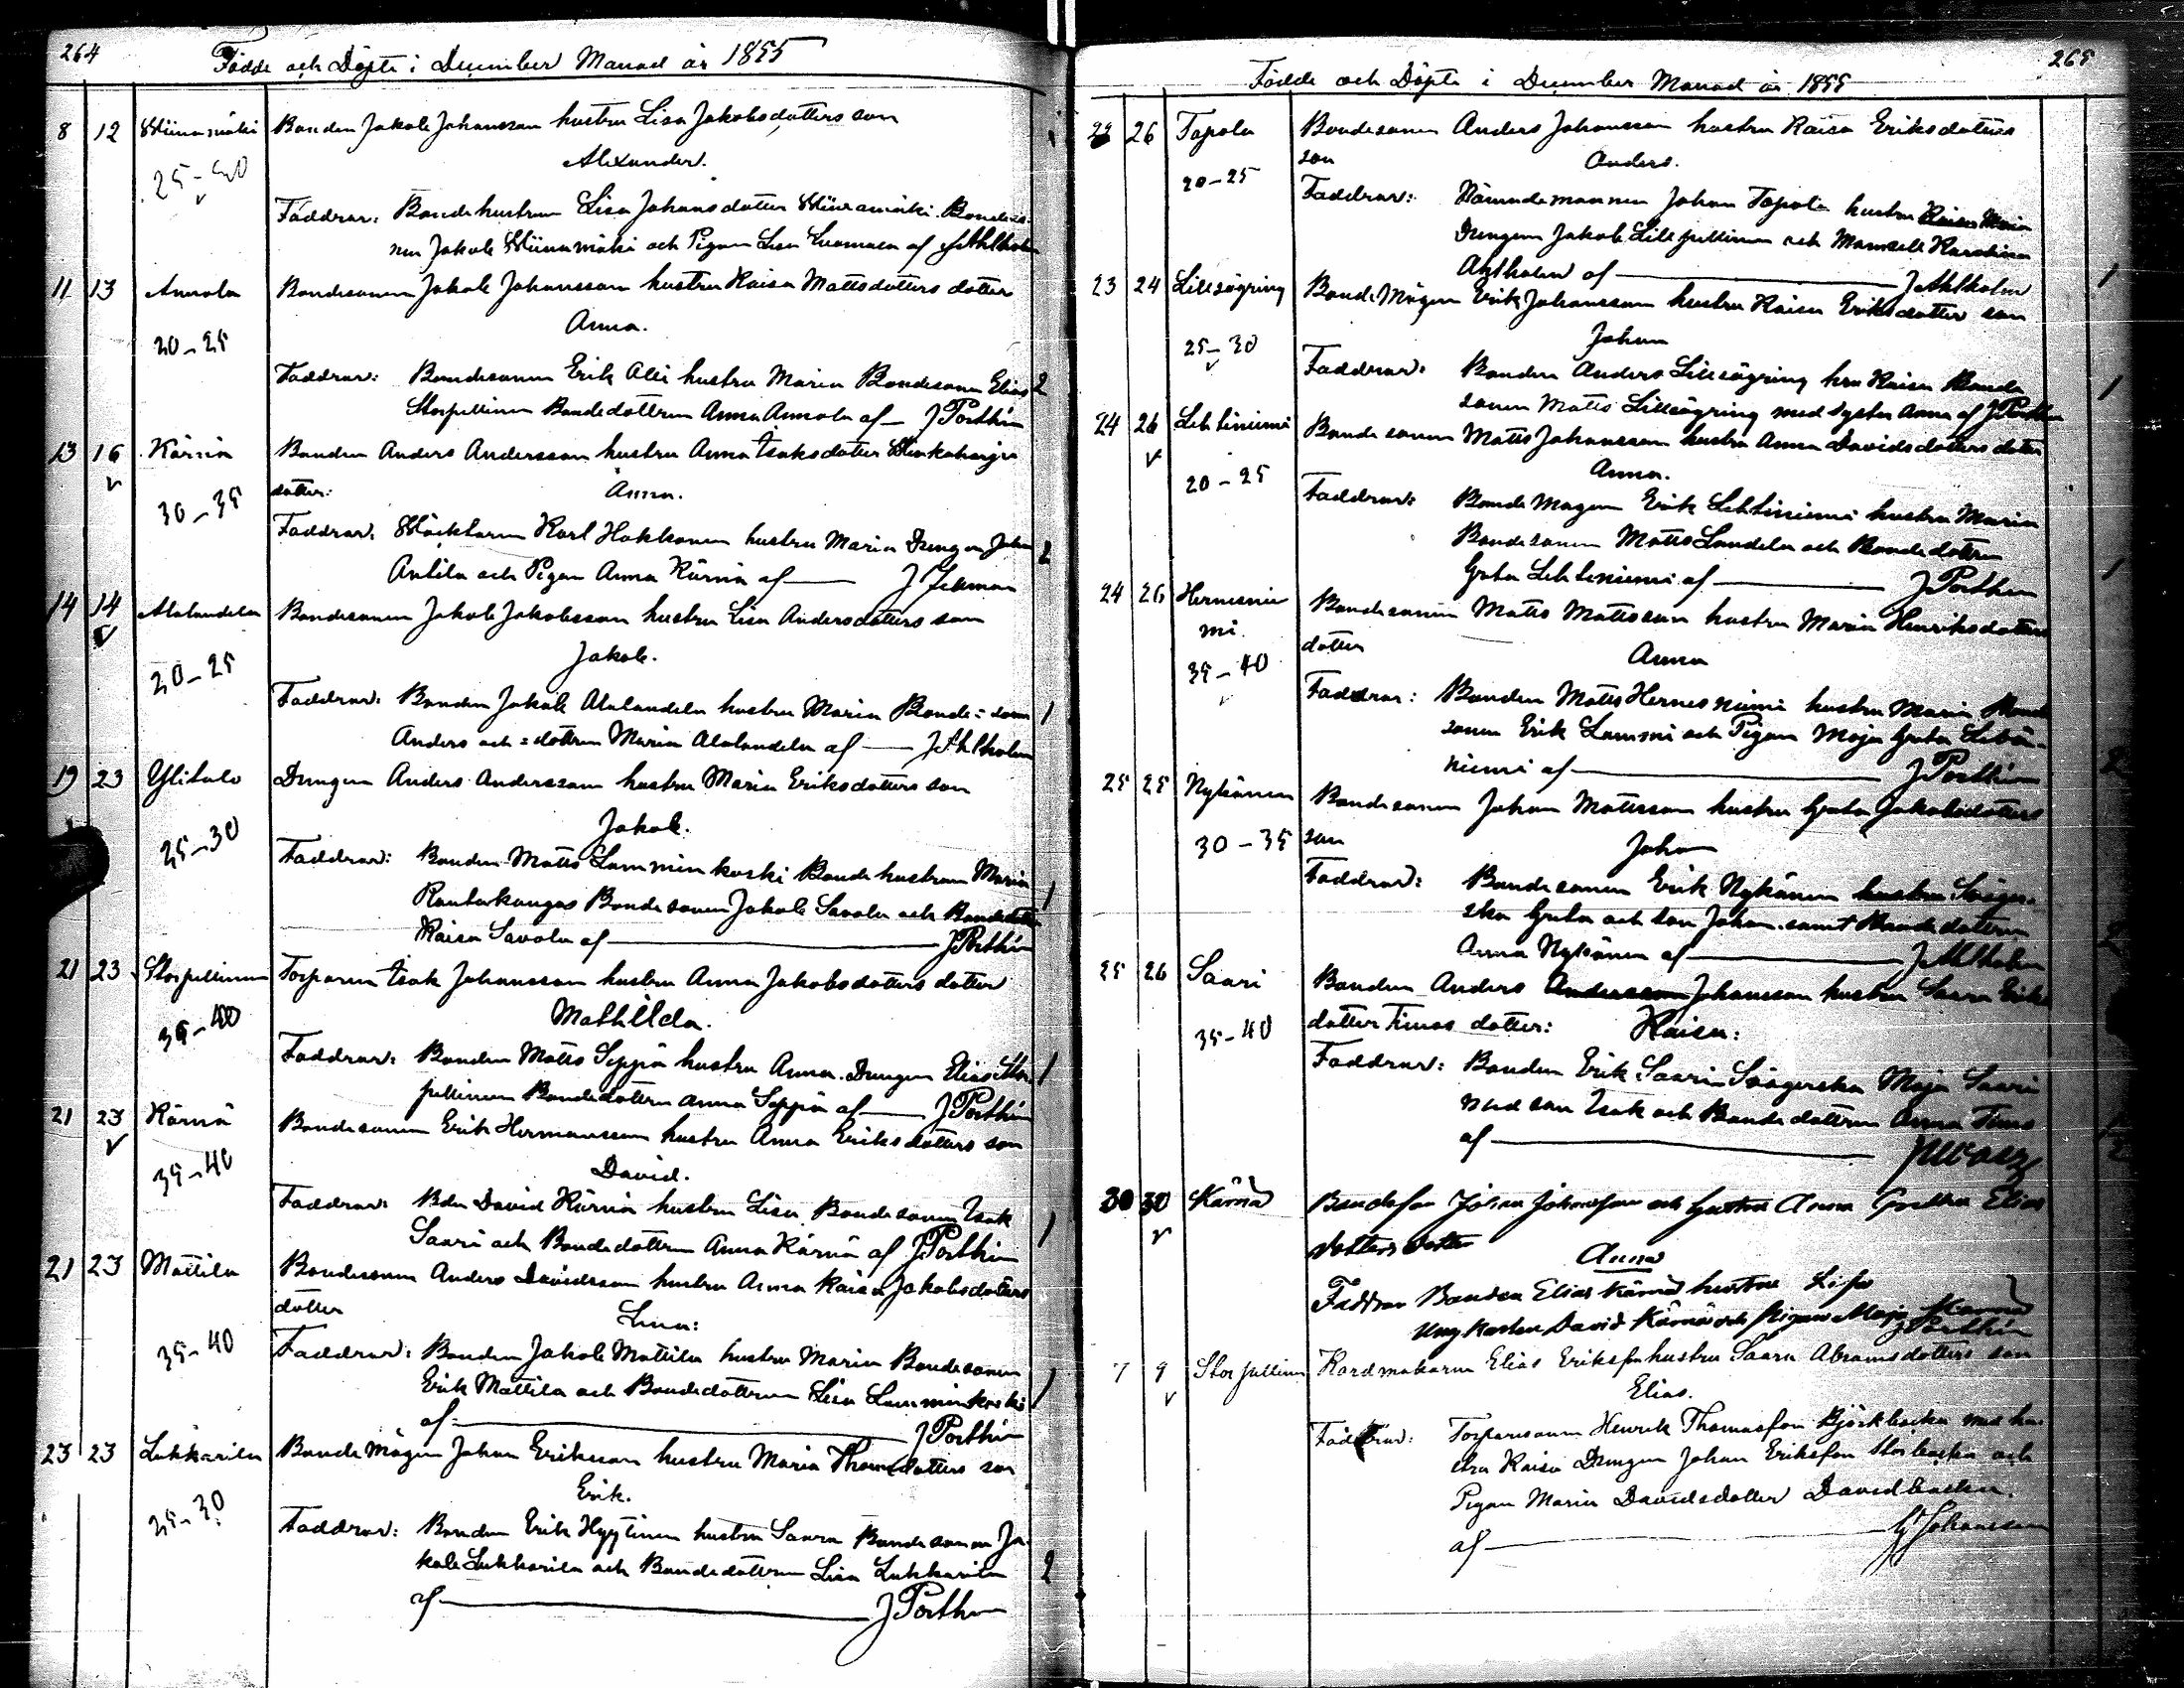 264
Födde och Döpte i December Manad år 1855
8 12 Wiinamäki Bonden Jakob Johansson hustru Lisa Jakobsdotters son
Alexander.
25-30
Faddrar: Bondehustrun Lisa Johansdotter Wiinamäki Bondeso-
nen Jakob Wiinamäki och Pigan Lisa af J Ahlholm
11 13 Annola Bondesonen Jakob Johansson hustru Kaisa Mattsdotters dotter
Anna.
20-25
Faddrar: Bondesonen Erik Alii hustru Maria Bondesonen Elias 2
Storpellinen Bondedottren Anna Annola af J Porthin
13 16 Kärnä Bonden Anders Andersson hustru Anna Isaksdotter
dotter: Anna.
30-35
Faddrar: Karl Hakkonen hustru Maria Drengen Johan 2
Antila och Pigan Anna Kärnä af J Fellman
14 14 Alalandela Bondesonen Jakob Jakobsson hustru Lisa Andersdotters son
Jakob.
20-25
Faddrar: Bonden Jakob Alalandela hustru Maria Bonde=sonen 1
Anders och =dottren Maria Alalandela af J Ahlholm
19 23 Ylitalo Drengen Anders Andersson hustru Maria Eriksdotters son
Jakob.
25-30
Faddrar: Bonden Matts Lamminkoski Bondehustrun Maria
Rautakangas Bondesonen Jakob Savola och Bondedottren 1
Kaisa Savola af J Porthin
21 23 Storpellinen Torparen Isak Johansson hustru Anna Jakobsdotters dotter
Mathilda.
35-40
Faddrar: Bonden Matts Seppä hustru Anna. Drengen Elias Stor- 1
pellinen Bondedottren Anna Seppä af J Porthin
21 23 Kärnä Bondesonen Erik Hermansson hustru Anna Eriksdotters son
David.
35-40
Faddrar: Bden David Kärnä hustru Lisa Bondesonen Isak
Saari och Bondedottren Anna Kärnä af J Porthin 1
21 23 Mattila Bondesonen Anders Davidsson hustru Anna Kaisa Jakobsdotters
dotter Lena:
35-40
Faddrar: Bonden Jakob Mattila hustru Maria Bondesonen
Erik Mattila och Bondedottren Lisa Lamminkoski 1
af J Porthin
23 23 Lukkarila Bonde Mågen Johan Eriksson hustru Maria Thomsdotters son
Erik.
25-30
Faddrar: Bonden Erik Hyytinen hustru Saara Bondesonen Ja-
kob Lukkarila och Bondedottren Lisa Lukkarila 2
af J Porthin
265
Födde och Döpte i December Manad år 1855
23 26 Topola Bondesonen Anders Johansson hustru Kaisa Eriksdotters
son Anders.
20-25
Faddrar: Nämndemannen Johan Topola hustru Maria
Drengen Jakob Lillpellinen och Mamsell Karolina
Ahlholm af J Ahlholm 1
23 24 Lillsögring Bonde Mågen Erik Johansson hustru Kaisa Eriksdotter son
Johan
25-30
Faddrar: Bonden Anders Lillsögring hru Kaisa Bonde 1
sonen Matts Lillsögring med syster Anna af J Porthin
24 26 Lehtiniemi Bondesonen Matts Johansson hustru Anna Davidsdotters dotter
Anna.
20-25
Faddrar: Bonde Magen Erik Lehtiniemi hustru Maria
Bondesonen Matts Landela och Bondedottren
Greta Lehtiniemi af J Porthin 1
24 26 Hernesnie
mi. Bondesonen Matts Mattsson hustru Maria Henriksdotters
dotter Anna
35-40
Faddrar: Bonden Matts Hernesniemi hustru Maria Bonde
sonen Erik Lammi och Pigan Maja Greta
niemi af J Porthin 2
25 25 Nykänen Bondesonen Johan Mattsson hustru Greta Jakobsdotters
son Johan
30-35
Faddrar: Bondesonen Erik Nykänen hustru Sväger-
skan Greta och son Johan samt Bondedottren
Anna Nykänen af J Ahlholm 2
25 26 Saari Bonden Anders Andersson Johansson hustru Saara Eriks
dotter Timos dotter: Kaisa:
35-40
Faddrar: Bonden Erik Saari Svägerskan Maja Saari
med son Isak och Bondedottren Anna Timo
af
30 30 Kärnä Bondeson Johan Johansson och hustru Anna Gretha Elias
dotters dotter Anna
Faddrar Bonden Elias Kärnä hustru Lisa
Ungkarlen David Kärnä och pigan Maja Kärnä
J Porthin
7 9 Storpellinen Kardmakaren Elias Eriksson hustru Saara Abramsdotters son
Elias.
Faddrar: Torparesonen Henrik Thomasson Björkbacka med hu-
stru Kaisa Drengen Johan Eriksson Storbacka och
Pigan Maria Davidsdotter Davidbacka.
af G Johansson